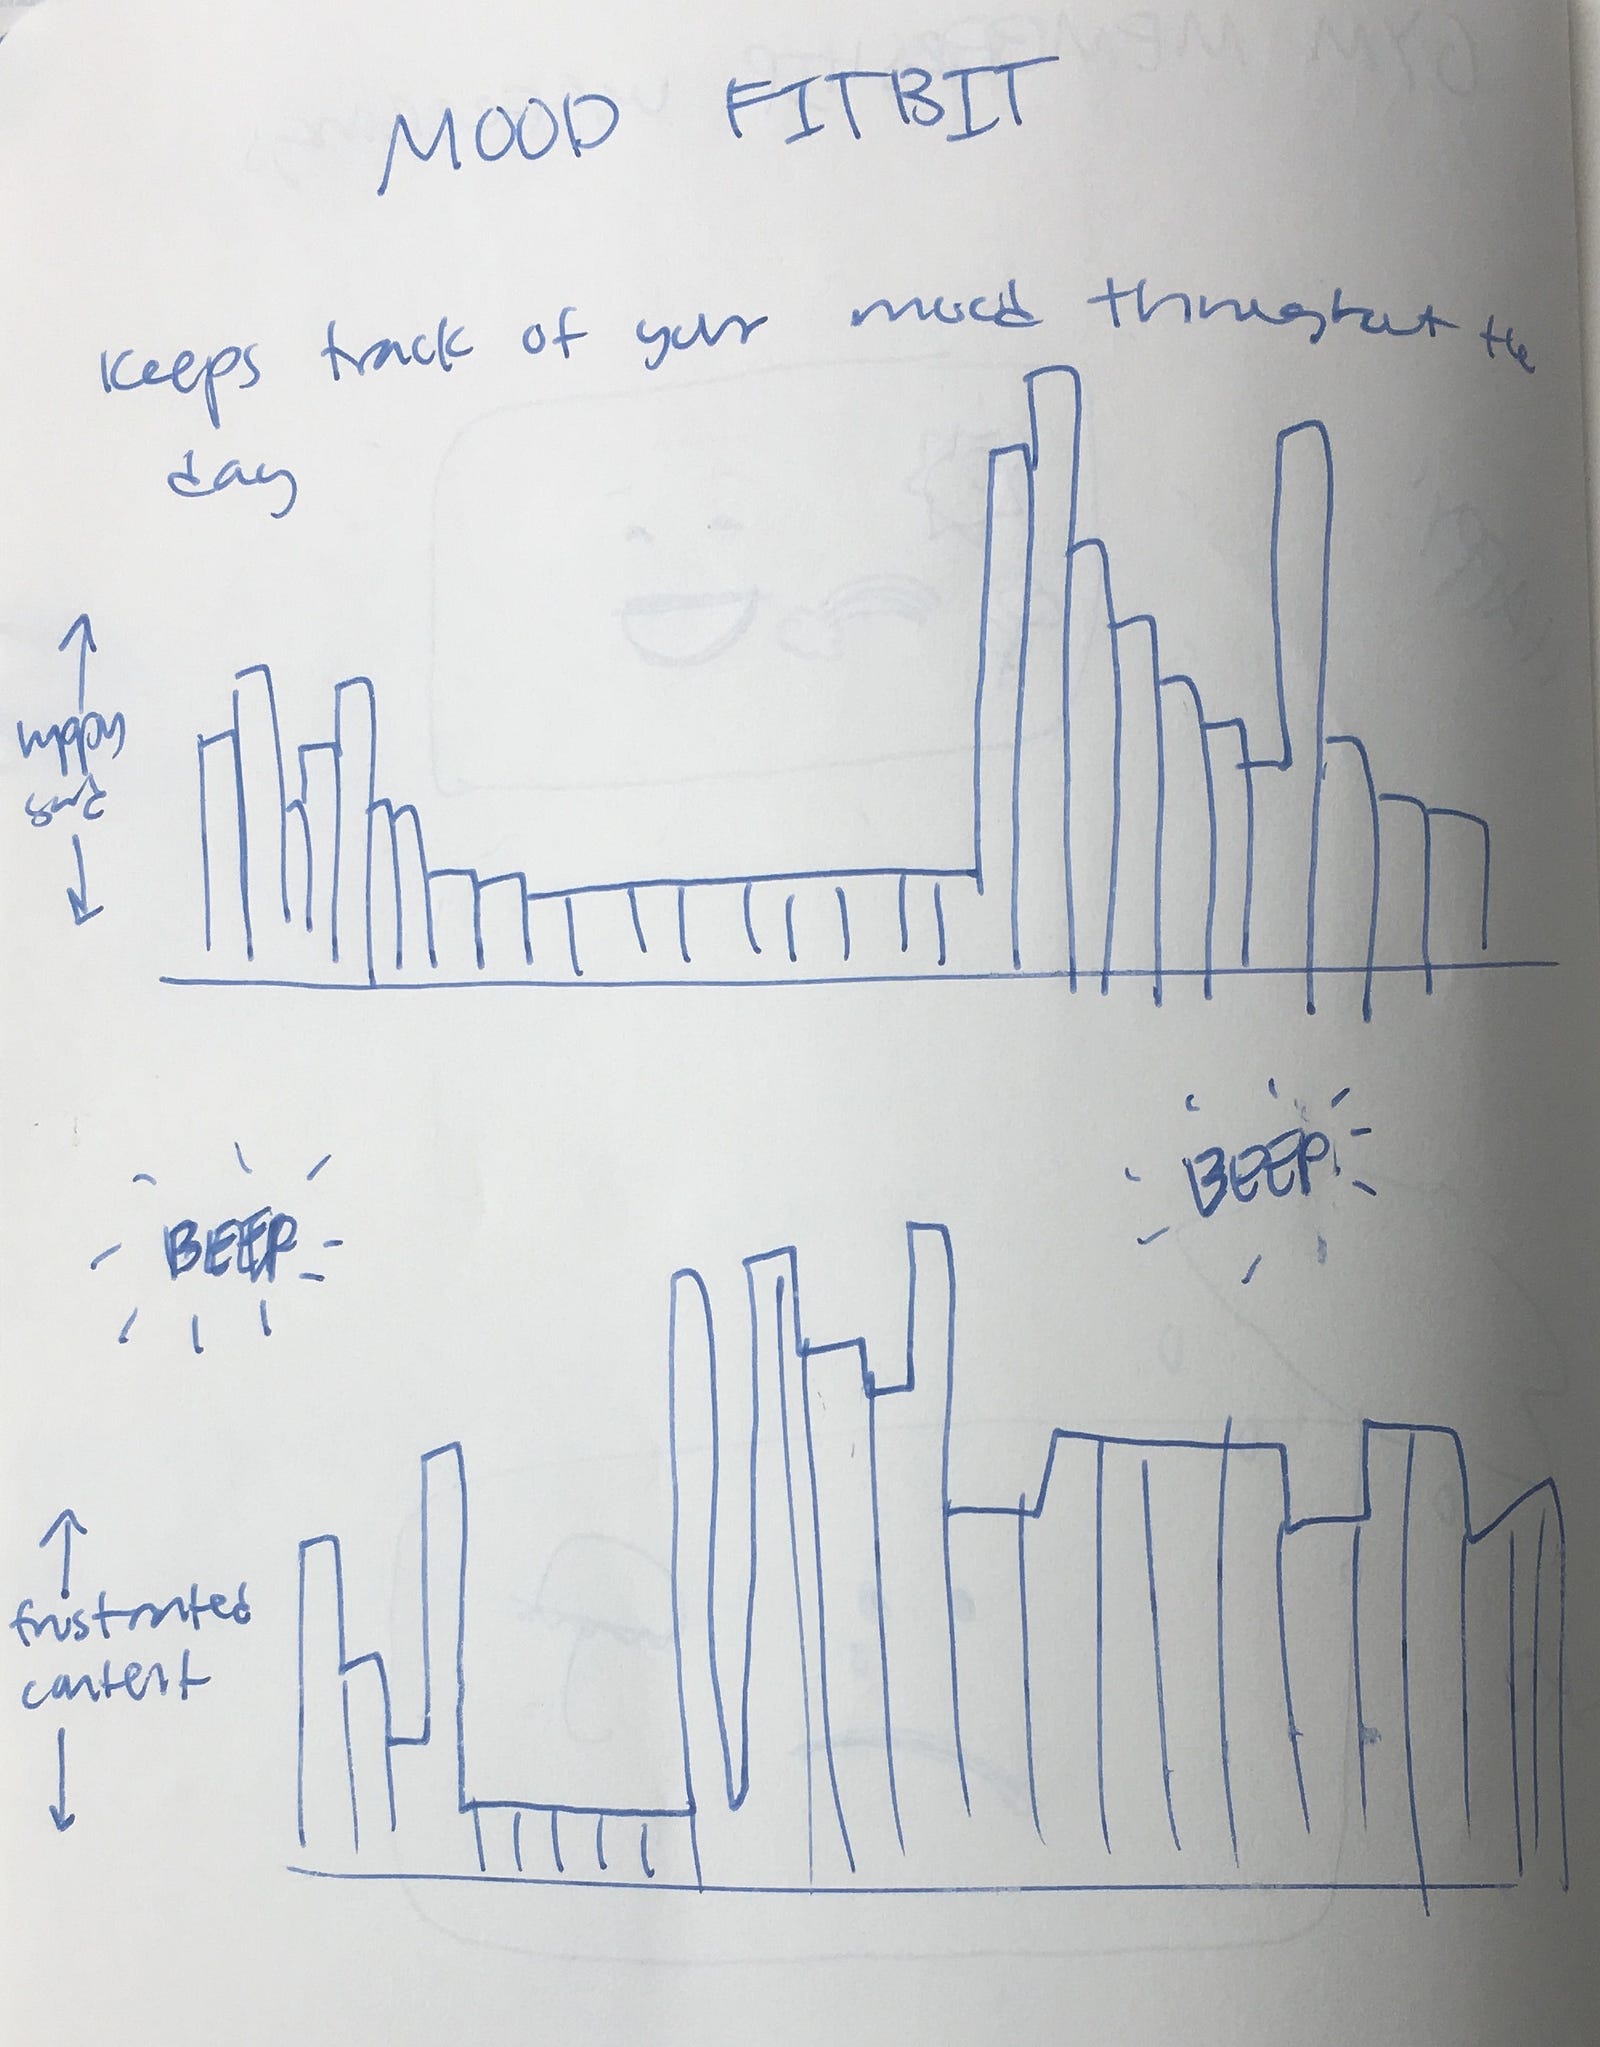 MOOD FITBIT
Keeps track of your mood throughout the
day
happy
sad
BEEP
BEEP
frustrated
content